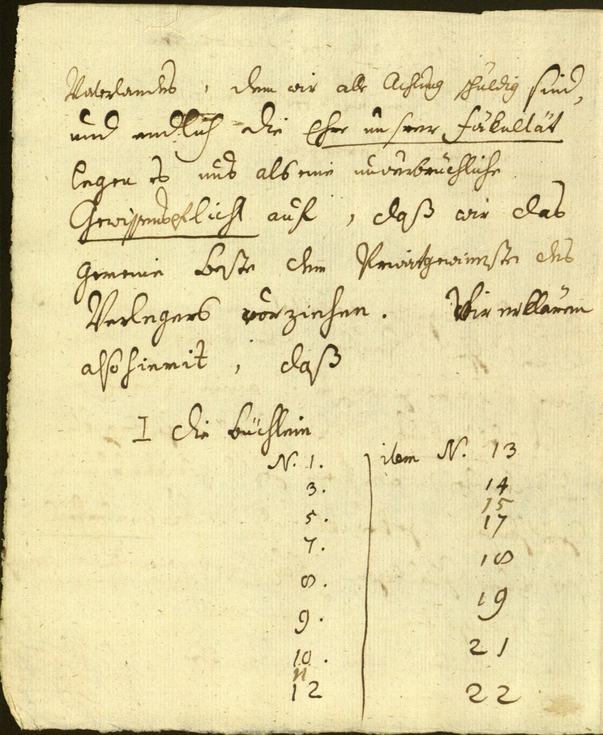 Vaterlandes, dem wir alle Achtung schuldig sind,
und endlich die Ehre unsrer Fäkultät
legen es uns als eine unverbrüchliche
Gewissenspflicht auf, daß wir das
gemeine Beste dem Privatgewinnste des
Verlegers vorziehen. Wir erklären
also hiemit, daß
I die büchlein
N. 1.
3.
5.
7.
8.
9.
10.
11
12
item N. 13
14
15
17
18
19
21
22